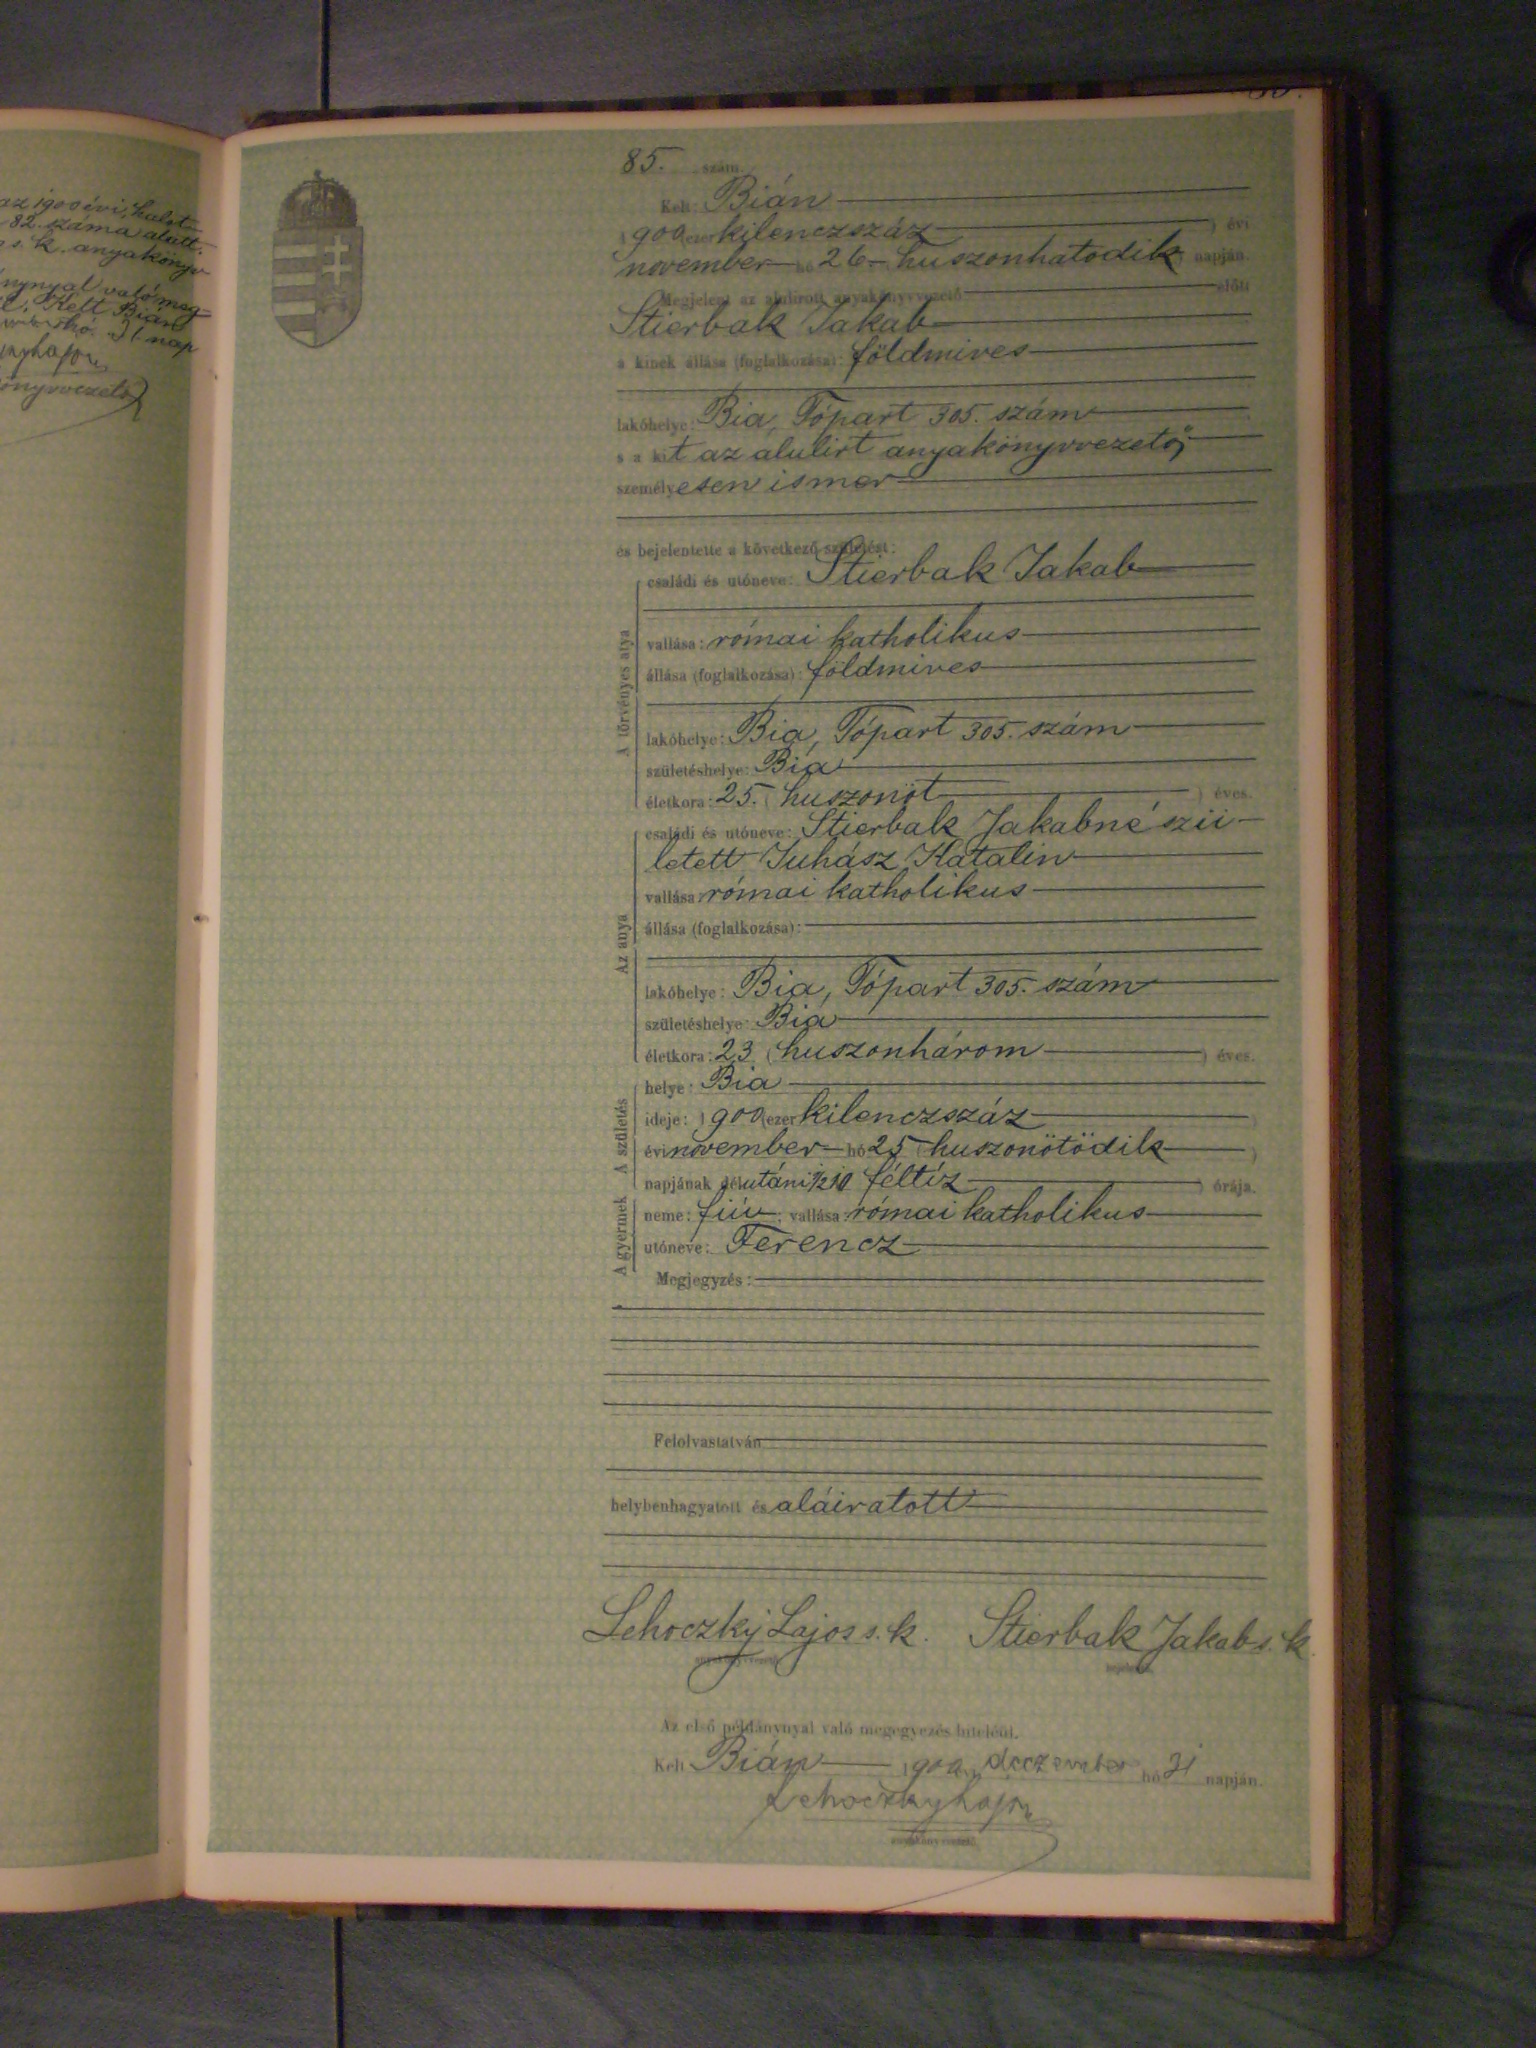 az 1900 évi, halot-
82. száma alatt.
s. k. anyakönyv-
nynyal való meg-
Kelt Bián
hó. 31 nap
önyvvezető
85. szám
Kelt: Bián
1900 (ezer kilenczszáz ) évi
november hó 26 huszonhatodik napján.
Megjelent az alulírott anyakönyvvezető előtt
Stierbak Jakab
a kinek állása (foglalkozása): földmíves
lakóhelye: Bia, Tópart 305. szám
s a kit az alulírt anyakönyvvezető,
személyesen ismer
és bejelentette a következő születést:
A törvényes atya
családi és utóneve: Stierbak Jakab
vallása: római katholikus
állása (foglalkozása): földmíves
lakóhelye: Bia, Tópart 305. szám
születéshelye: Bia
életkora: 25. ( huszonöt ) éves.
Az anya
családi és utóneve: Stierbak Jakabné szü-
letett Juhász Katalin
vallása: római katholikus
állása (foglalkozása):
lakóhelye: Bia, Tópart 305. szám
születéshelye: Bia
életkora: 23 ( huszonhárom ) éves.
A születés
helye: Bia
ideje: 1900 (ezer kilenczszáz )
évi november hó 25 (huszonötödik )
napjának délutáni ½10 féltíz ) órája.
A gyermek
neme: fiú; vallása: római katholikus
utóneve: Ferencz
Megjegyzés:
Felolvastatván
helybenhagyatott és aláiratott
Lehoczky Lajos s. k. Stierbak Jakab s. k.
anyakönyvvezető
bejelentő
Az első példánynyal való megegyezés hiteléül.
Kelt Bián 1900 évi deczember hó 31 napján.
Lehoczky Lajos
anyakönyvvezető